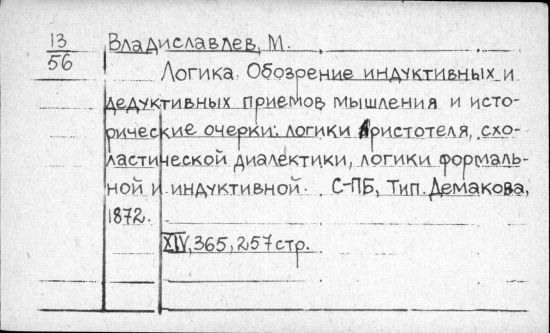 13 Владиславлев, М.
56
Логика. Обозрение индуктивных и
дедуктивных приемов мышления и исто-
рические очерки: логики Аристотеля, схо-
ластической диалектики, логики формаль-
ной и индуктивной. С-ПБ, Тип. Демакова,
1872.
XIV, 365, 257 стр.